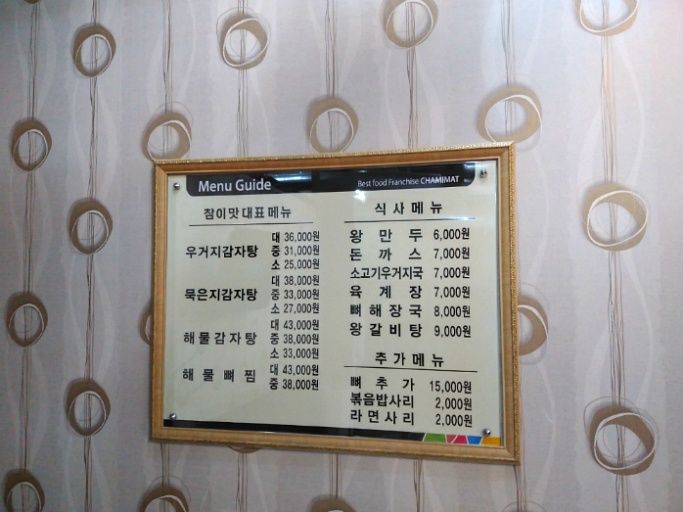 Menu Guide
Best food Franchise CHAMIMAT
참이맛 대표메뉴
우거지감자탕
대 36,000원
중 31,000원
소 25,000원
묵은지감자탕
대 38,000원
중 33,000원
소 27,000원
해물감자탕
대 43,000원
중 38,000원
소 33,000원
해물뼈찜
대 43,000원
중 38,000원
식사메뉴
왕만두 6,000원
돈까스 7,000원
소고기우거지국 7,000원
육계장 7,000원
뼈해장국 8,000원
왕갈비탕 9,000원
추가메뉴
뼈추가 15,000원
볶음밥사리 2,000원
라면사리 2,000원